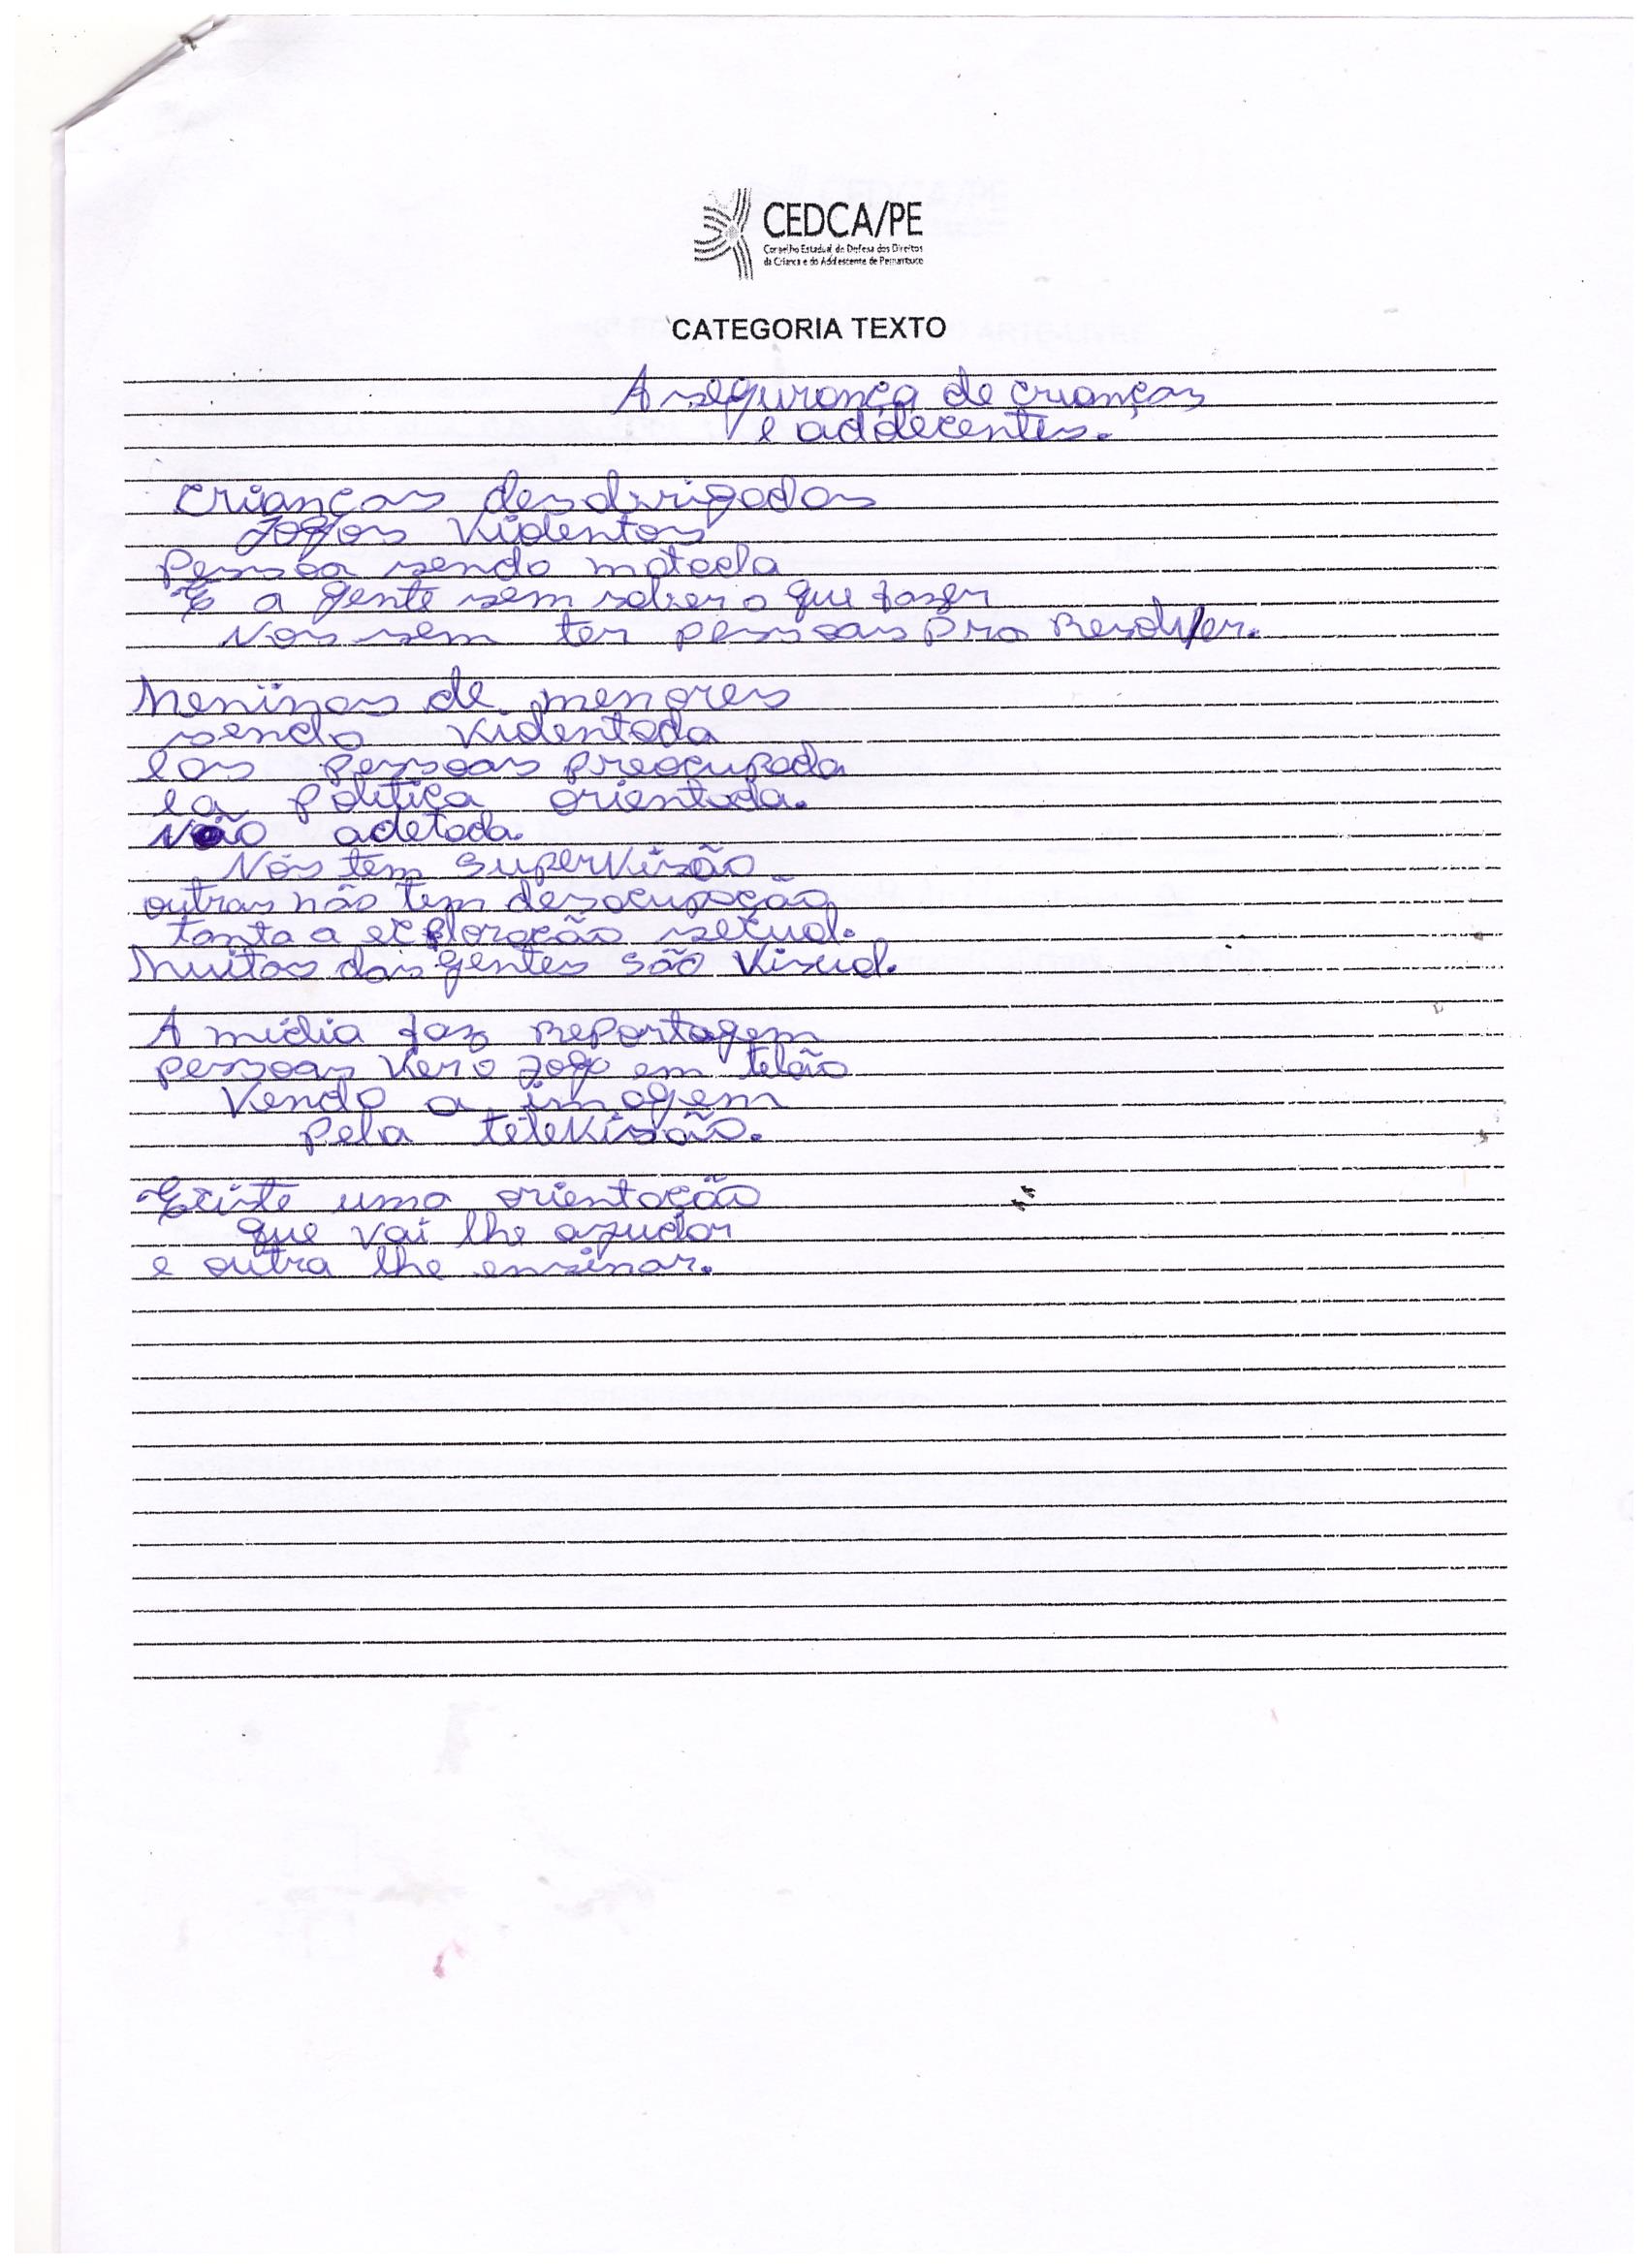 CEDCA/PE
Conselho Estadual de Defesa dos Direitos
da Criança e do Adolescente de Pernambuco
CATEGORIA TEXTO
A segurança de crianças
e adolecentes.
Crianças desabrigadas
Jogos violentos
Pessoa sendo matada
E a gente sem saber o que fazer
Nos sem ter pessoas pra Resolver.
Meninas de menores
sendo violentada
e as pessoas preocupada
e a política orientada.
Não adetada.
Nós tem supervisão
outras não tem desocupação
tanta a exploração sexual.
Muitas das gentes são visual.
A mídia faz Reportagem
pessoas ver o jogo em telão
Vendo a imagem
pela televisão.
Existe uma orientação
que vai lhe ajudar
e outra lhe ensinar.